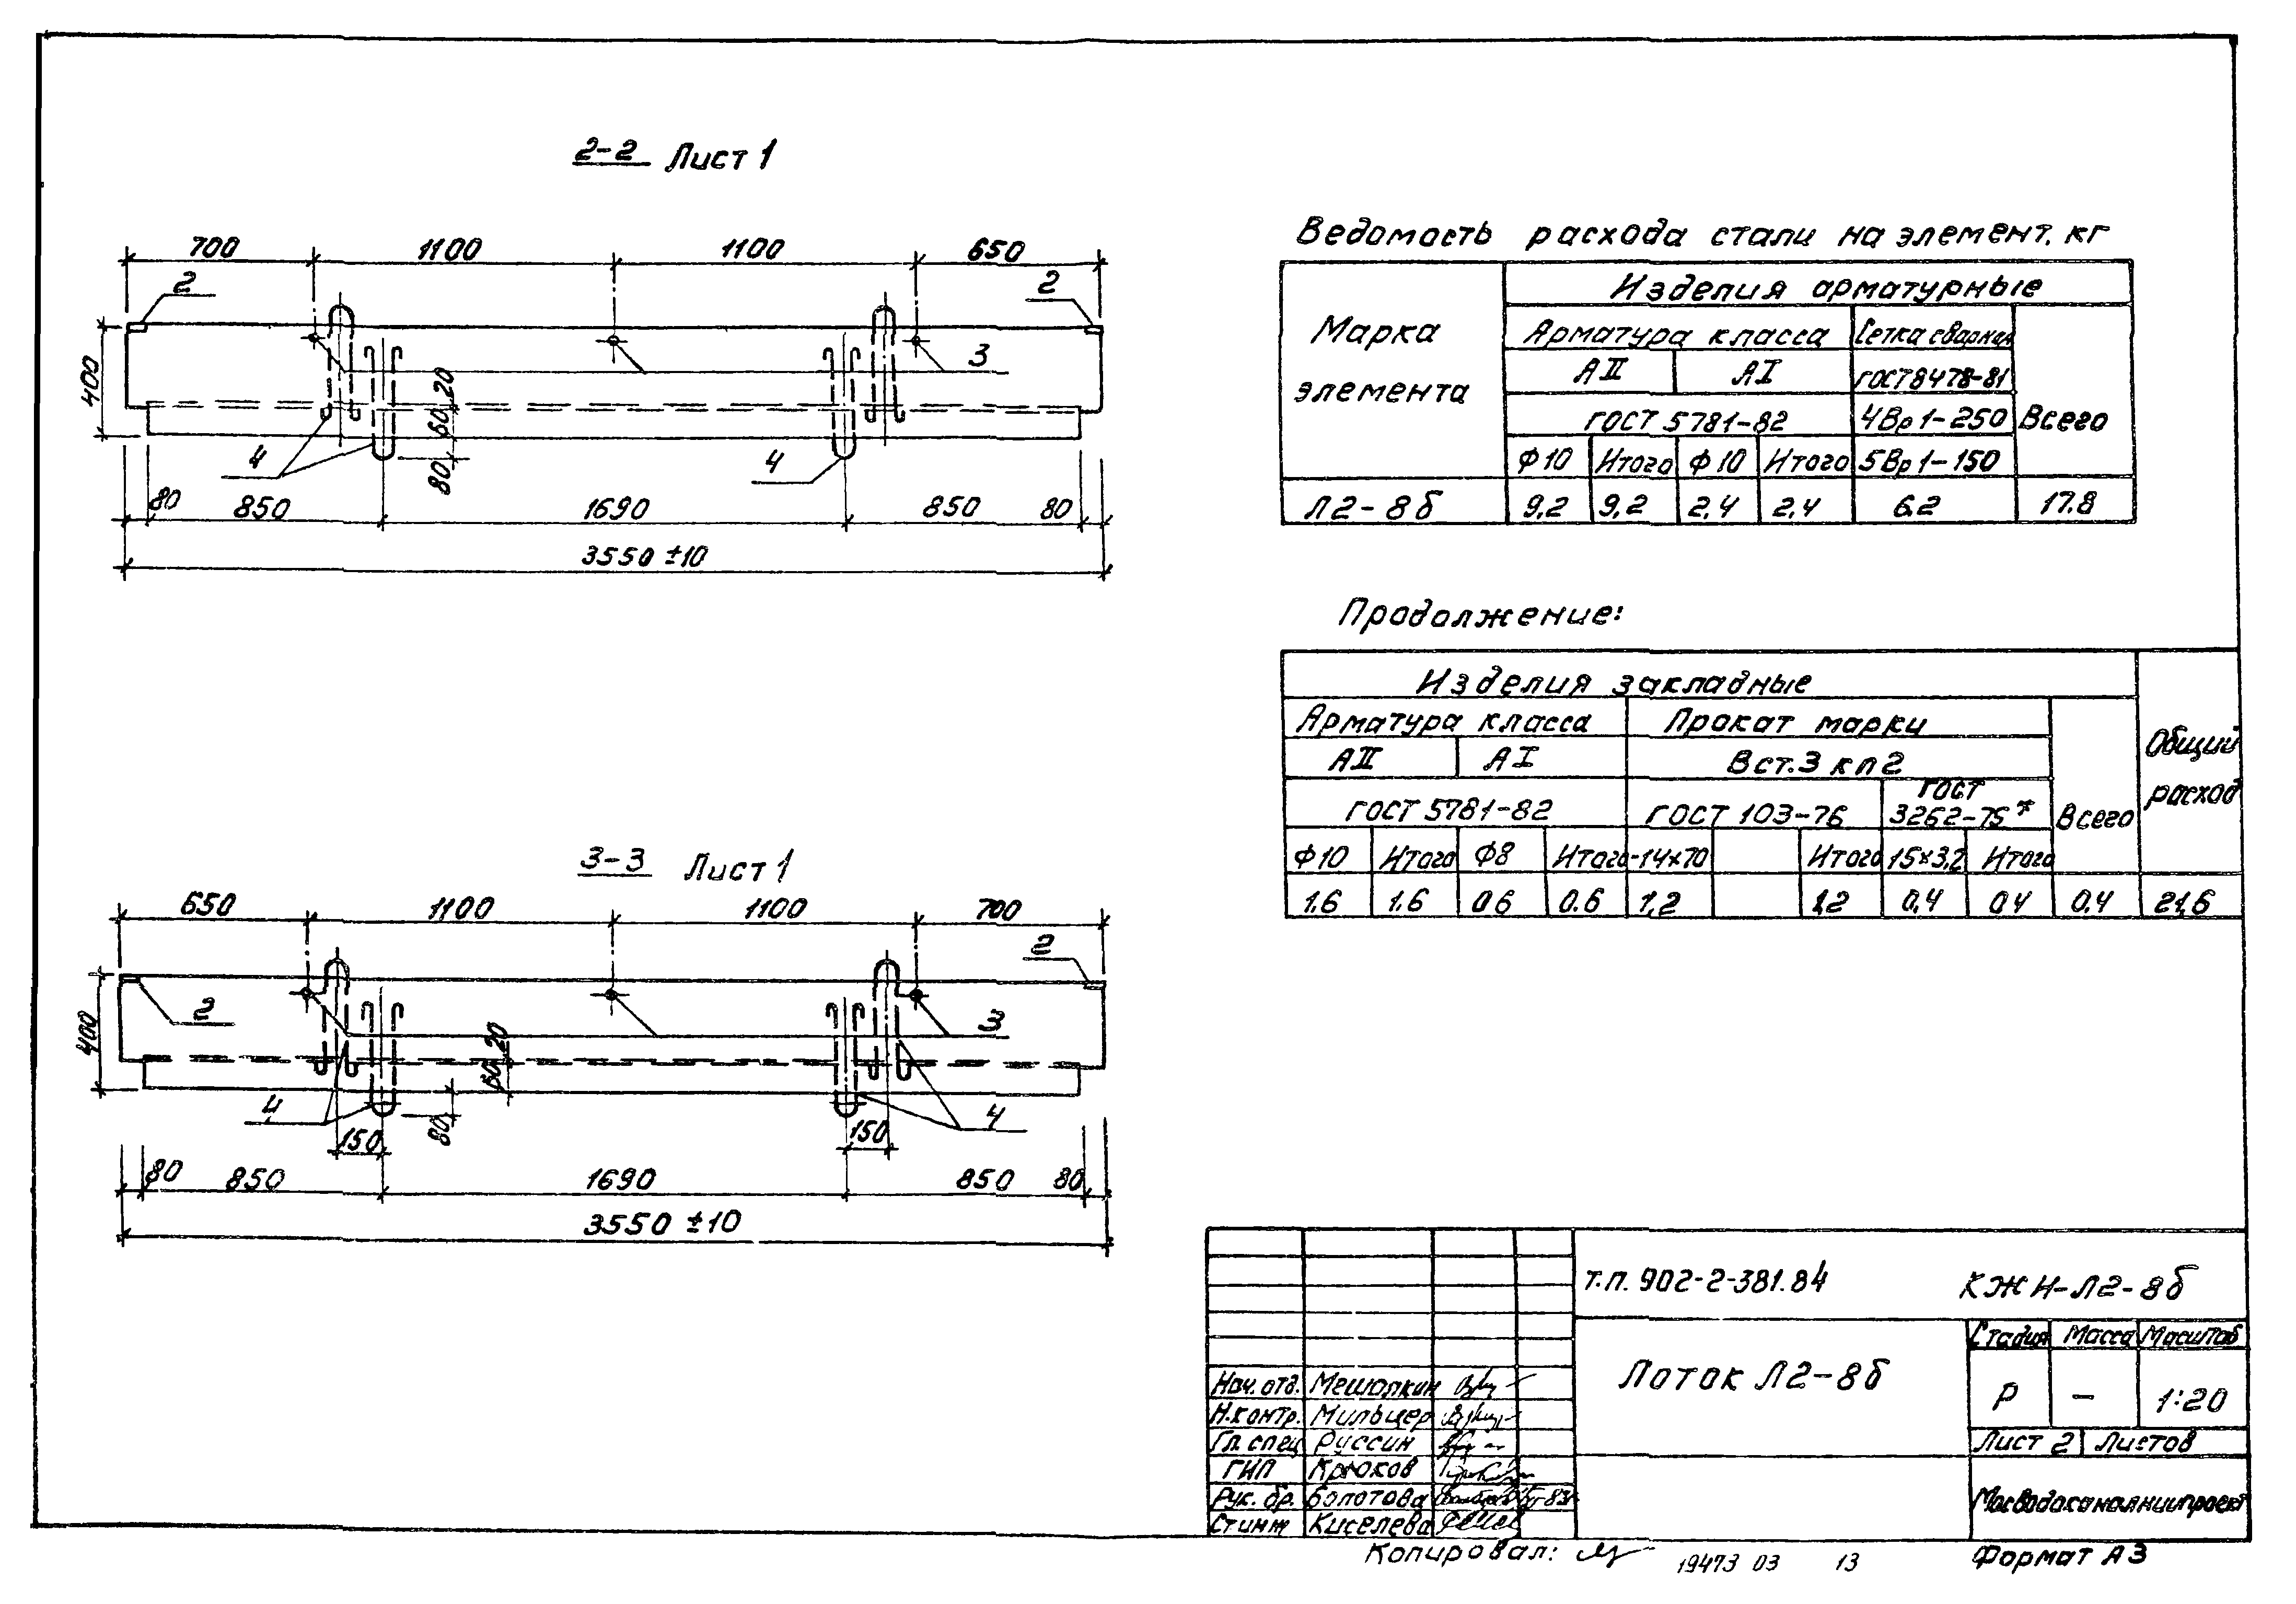 2-2 Лист 1
700 1100 1100 650
2 2
3
400
20
60
80
4 4
80 850 1690 850 80
3550 ±10
3-3 Лист 1
650 1100 1100 700
2
2
3
400
20
60
80
4 4
150 150
80 850 1690 850 80
3550 ±10
Ведомость расхода стали на элемент, кг
Марка элемента
Изделия арматурные
Арматура класса Сетка сварная
АII АI ГОСТ 8478-81
ГОСТ 5781-82 4Вр1-250 Всего
Ф10 Итого Ф10 Итого 5Вр1-150
Л2-8б 9,2 9,2 2,4 2,4 6.2 17.8
Продолжение:
Изделия закладные
Общий расход
Арматура класса Прокат марки
АII АI Вст.3 кп2
ГОСТ 5781-82 ГОСТ 103-76 ГОСТ 3262-75* Всего
Ф10 Итого Ф8 Итого -14х70 Итого 15х3,2 Итого
1.6 1.6 0.6 0.6 1,2 1,2 0,4 0,4 0,4 21,6
т.п. 902-2-381.84 КЖИ-Л2-8б
Лоток Л2-8б
Стадия Масса Масштаб
Р – 1:20
Лист 2 Листов
Мосводоканалниипроект
Нач. отд. Мешалкин
Н.контр. Мильцер
Гл. спец Руссин
ГИП Крюков
Рук. бр. Болотова
Ст.инж Киселева
Копировал:
19473 03 13
Формат А3